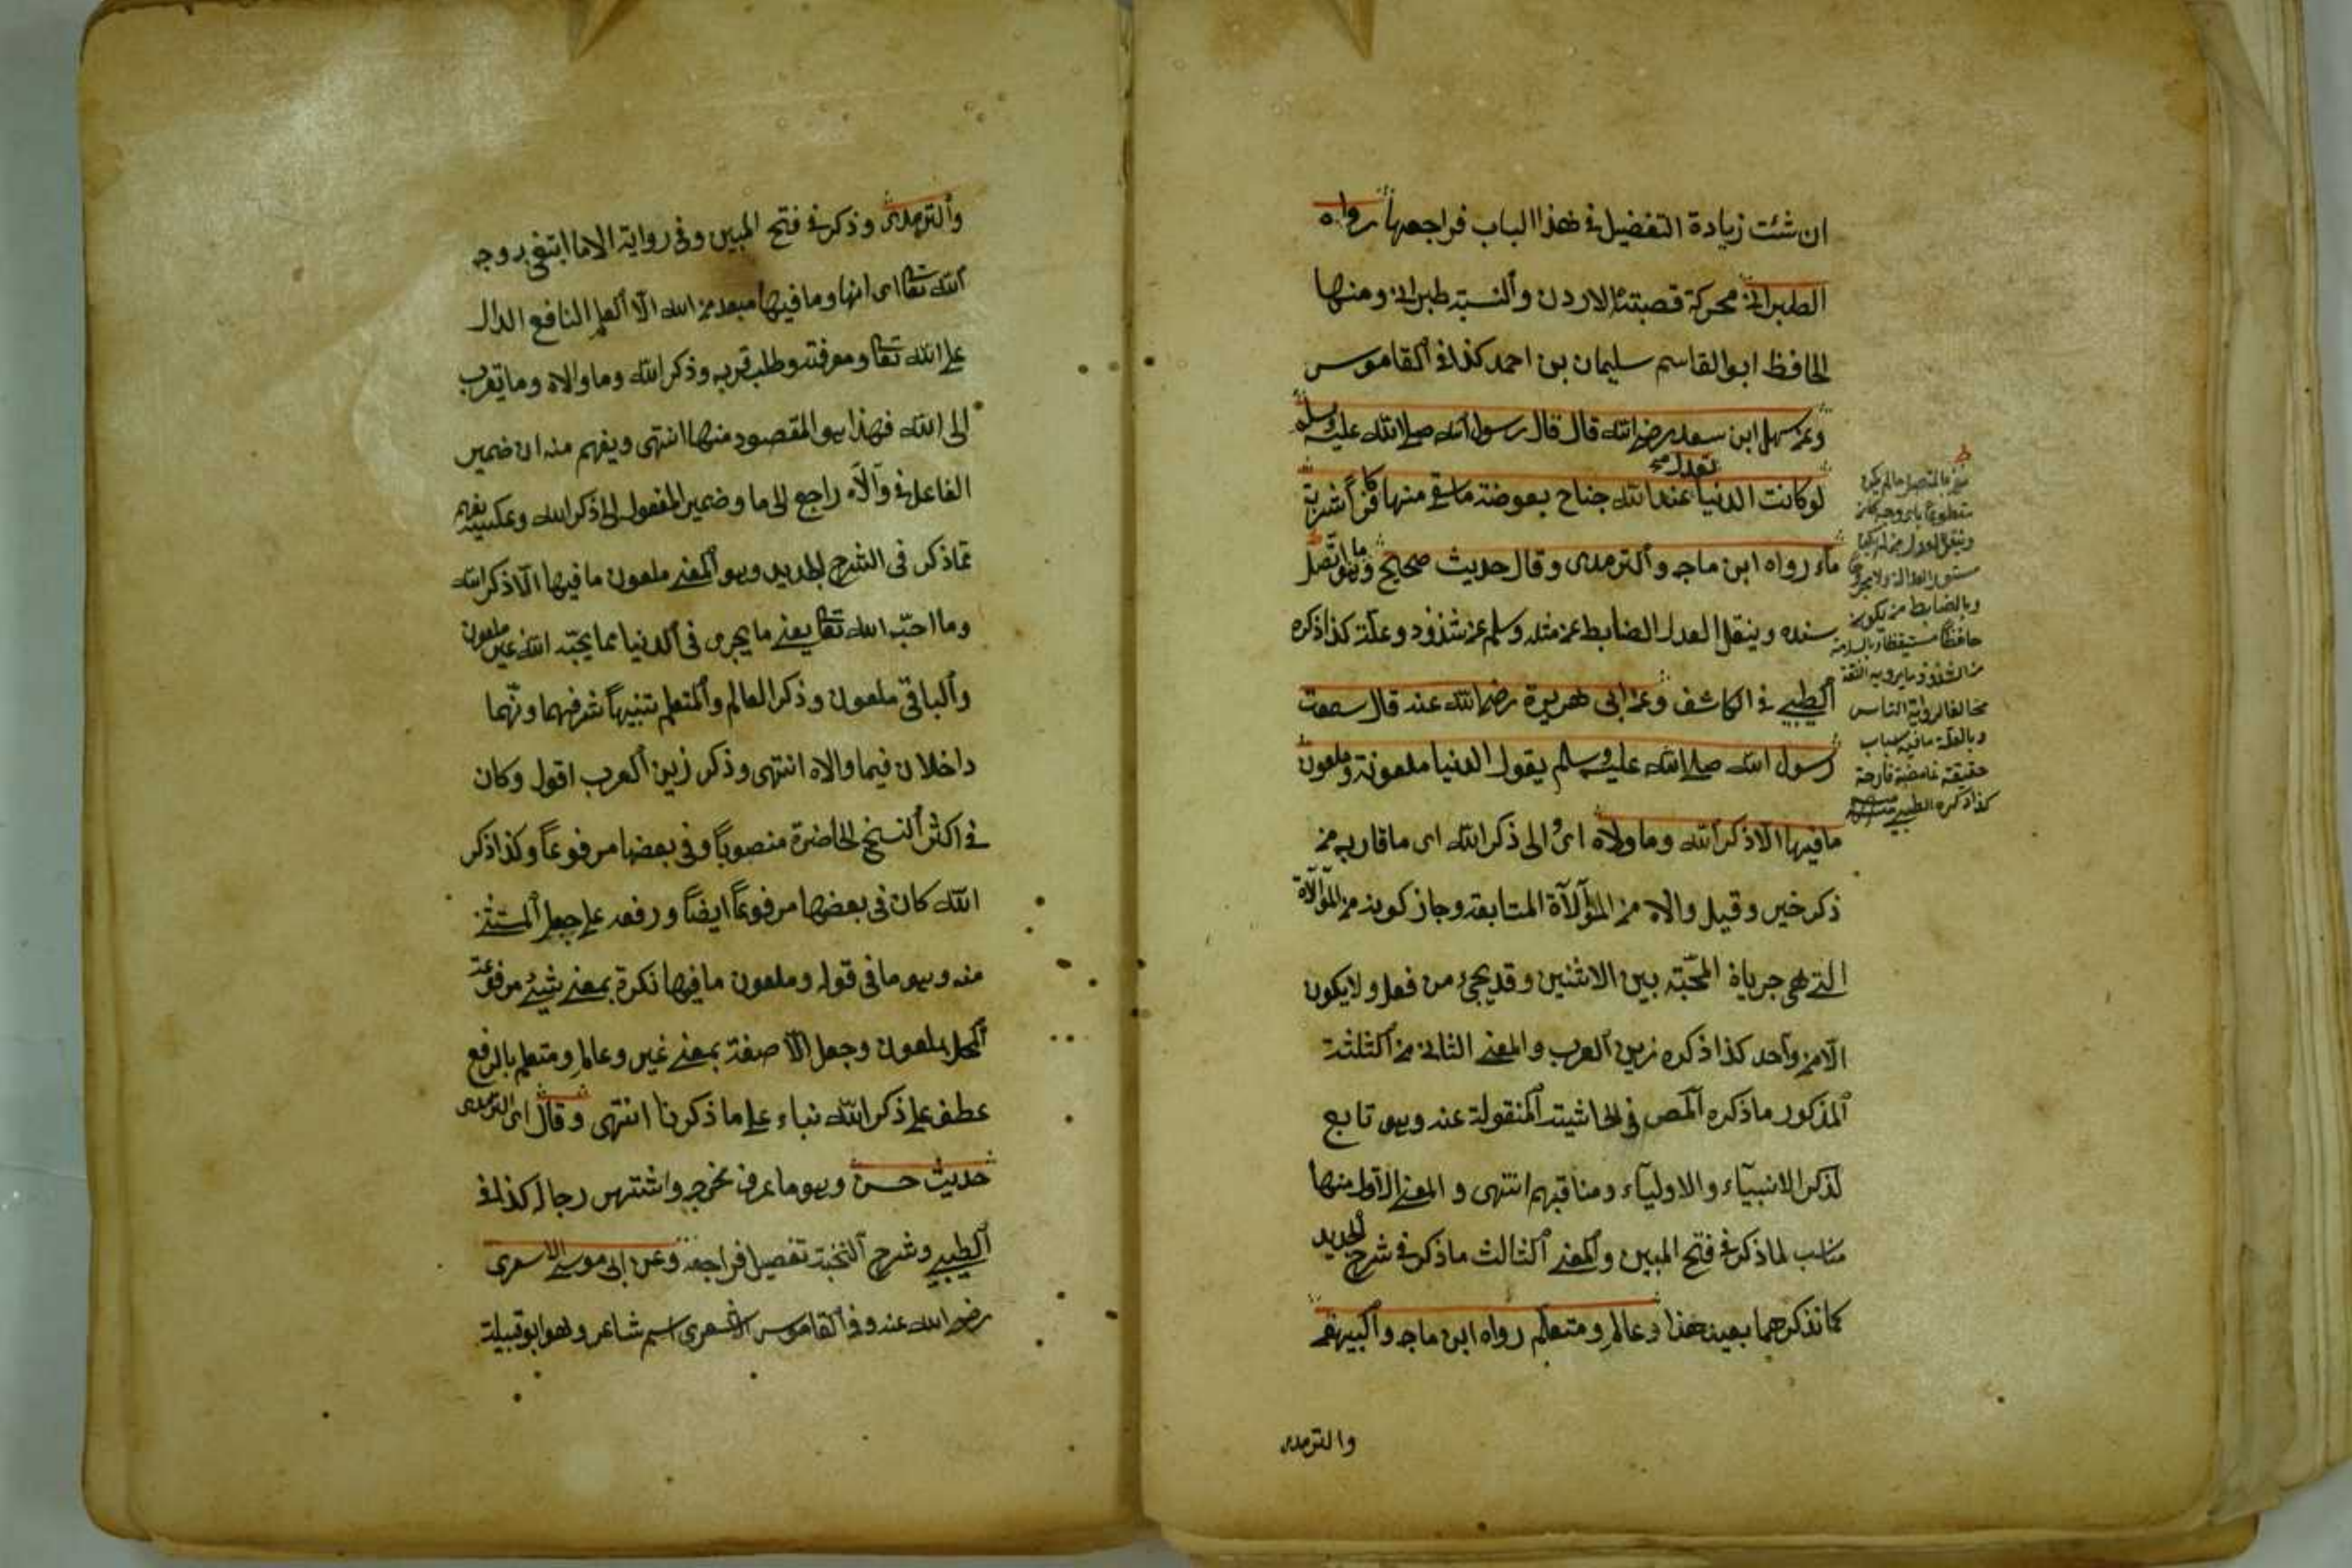 ان شئت زيادة التفضيل في هذا الباب فراجعها رواه
الطبراني محركة قصبته الاردن والنسبته طبراني ومنها
الحافظ ابو القاسم سليمان بن احمد كذا في القاموس
وعن سهل ابن سعد رضي الله قال قال رسول الله صلى الله عليه وسلم
تعدل
لو كانت الدنيا عند الله جناح بعوضة ما سقى منها كافرا شربة
ماء رواه ابن ماجه والترمدى وقال حديث صحيح وهو ما اتصل
سنده وينقل العدل الضابط عن مثله وسلم عن شذوذ وعلة كذا ذكره
الطيبي في الكاشف وعن ابى هريرة رضي الله عنه قال سمعت
رسول الله صلى الله عليه وسلم يقول الدنيا ملعونة وملعون
ما فيها الا ذكر الله وما ولاه اى الى ذكر الله اى ما قاربه من
ذكر خير وقيل والاه من المؤالاة المتابقه وجاز كونه من المؤالاة
التي هي جرياة المحبته بين الاثنين وقد يجيء من فعل ولا يكون
الا من واحد كذا ذكره زين العرب والمعنى الثاني من الثلثة
المذكور ما ذكره المص في الحاشيته المنقولة عنه وهو تابع
لذكر الانبياء والاولياء ومناقبهم انتهى والمعنى الاول منها
مناسب لما ذكر في فتح المبين والمعنى الثالث ما ذكر في شرح الجديد
كما نذكرهما بعيد هذا وعالم ومتعلم رواه ابن ماجه والبيهقي
والترمدى
مخالفا لرواية الناس
كذا ذكره الطيبي
والترمدى وذكر في فتح المبين وفى رواية الا ما ابتغى به وجه
الله تعالى اى انها وما فيها مبعد من الله الا العلم النافع الدال
على الله تعالى ومعرفته وطلب قربه وذكر الله وما والاه وما يقرب
الى الله فهذا هو المقصود منها انتهى ويفهم منه ان ضمير
الفاعل في والاه راجع الى ما وضمير المفعول الى ذكر الله وعكسيته يفهم
مما ذكر فى الشرح الجديد وهو المعنى ملعون ما فيها الا ذكر الله
وما احبه الله تعالى يعنى ما يجرى فى الدنيا مما يحبه الله غير ملعون
والباقى ملعون وذكر العالم والمتعلم تنبيها شرفهما ونهما
داخلان فيما والاه انتهى وذكر زين العرب اقول وكان
في اكثر النسخ الحاضرة منصوبا وفى بعضها مرفوعا وكذا ذكر
الله كان فى بعضها مرفوعا ايضا ورفعه على جعل المستثنى
منه وهو ما فى قوله وملعون ما فيها نكرة بمعنى شيء مرفوعة
المحل بملعون وجعل الا صفة بمعنى غير وعالم ومتعلم بالرفع
عطف على ذكر الله نباء على ما ذكرنا انتهى وقال اى الترمدى
حديث حسن وهو ما عرف مخرجه واشتهر رجاله كذا في
الطيبي وشرح النخبة تفصيل فراجعه وعن ابى موسى الاسعرى
رضي الله عنه وفى القاموس الاشعرى اسم شاعر وهو ابو قبيلة